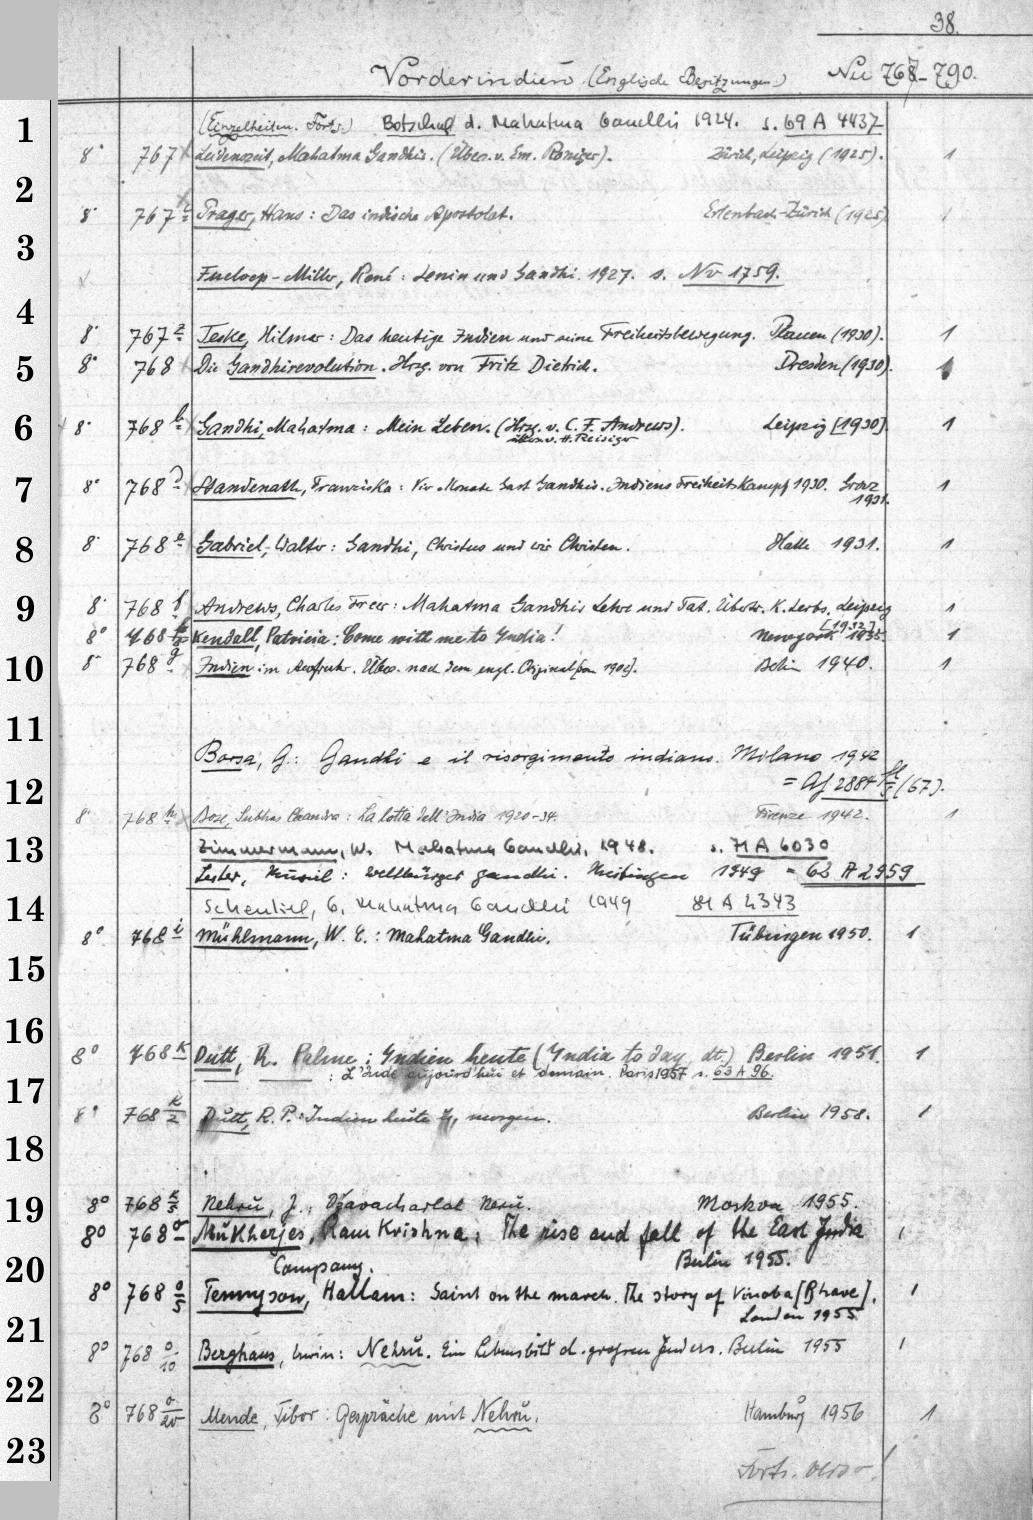 38.
Vorderindien (Englische Besitzungen) Nu 767-790.
1 (Einzelheiten. Forts.) Botschaft d. Mahatma Gandhi 1924. s. 69 A 4437
8° 767 Leidenszeit, Mahatma Gandhis. (Übers. v. Em. Roniger). Zürich, Leipzig (1925). 1
2
8° 767 Prager, Hans: Das indische Apostolat. Erlenbach-Zürich (1925) 1
3
Fueloep-Miller, René: Lenin und Gandhi. 1927. s. Nv 1759.
4
8° 767 Teske, Hilmar: Das heutige Indien und seine Freiheitsbewegung. Plauen (1930). 1
5 8° 768 Die Gandhirevolution. Hrsg. von Fritz Dietrich. Dresden (1930). 1
6 8° 768 b Gandhi, Mahatma: Mein Leben. (Hrsg. v. C. F. Andrews). Leipzig [1930]. 1
übers. v. H. Reisiger
7 8° 768 Standenath, Franziska: Vier Monate Gast Gandhis. Indiens Freiheitskampf 1930. Graz 1
1931.
8 8° 768 e Gabriel, Walter: Gandhi, Christus und wir Christen. Halle 1931. 1
9 8° 768 f Andrews, Charles Freer: Mahatma Gandhis Lehre und Tat. Übertr. K. Lerbs. Leipzig 1
[1932]
8° 768 Kendall, Patricia: Come with me to India! Newyork 1935. 1
10 8° 768 g Indien im Aufruhr. Übers. nach dem engl. Original [von 190]. Berlin 1940. 1
11
Borsa, G.: Gandhi e il risorgimento indiano. Milano 1942
12 = Af 2884 (67).
8° 768 h Bose, Subhas Chandra: La lotta dell'India 1920-34. Firenze 1942. 1
13 Zimmermann, W. Mahatma Gandhi, 1948. s. 71 A 6030
Lester, Muriel: Weltbürger Gandhi. Meitingen 1949 = 62 A 2959
14 Schenkel, G. Mahatma Gandhi 1949 81 A 4343
8° 768 i Mühlmann, W. E.: Mahatma Gandhi. Tübingen 1950. 1
15
16
8° 768 k Dutt, R. Palme: Indien heute (India to day, dt.) Berlin 1951. 1
17 : L'Inde aujourd'hui et demain. Paris 1957 s. 63 A 96.
8° 768 k/2 Dutt, R. P.: Indien heute u. morgen. Berlin 1958. 1
18
19 8° 768 k/5 Nehru, J.: Džavacharlal Neru. Moskva 1955.
8° 768 o Mukherjes, Ram Krishna: The rise and fall of the East India 1
20 Company. Berlin 1955.
8° 768 o/5 Tennyson, Hallam: Saint on the march. The story of Vinoba [Bhave]. 1
London 1955
21 8° 768 o/10 Berghaus, Erwin: Nehru. Ein Lebensbild d. grossen Inders. Berlin 1955 1
22
8° 768 o/20 Mende, Tibor: Gespräche mit Nehru. Hamburg 1956 1
23
Forts. verso!